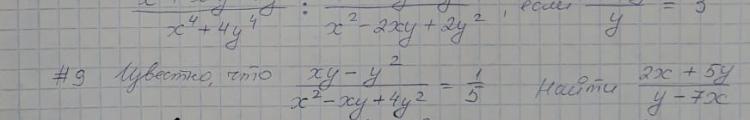 x⁴+4y⁴ : x²-2xy+2y² , если y = 9
#9 Известно, что (xy - y²)/(x² - xy + 4y²) = 1/5 Найти (2x + 5y)/(y - 7x)